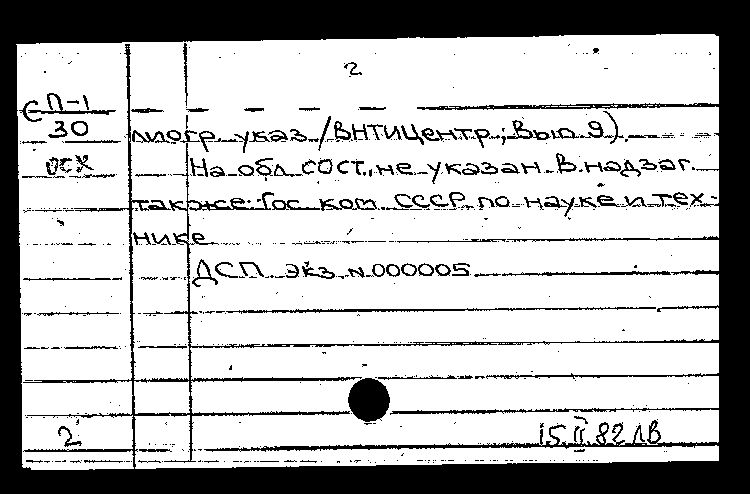 2
СП-1
30
ОСХ
лиогр. указ./ВНТИЦентр; Вып 9).
На обл. сост. не указан. В надзаг.
также: Гос. ком. СССР по науке и тех-
нике
ДСП экз. N 000005
2
15.II.82 ЛВ